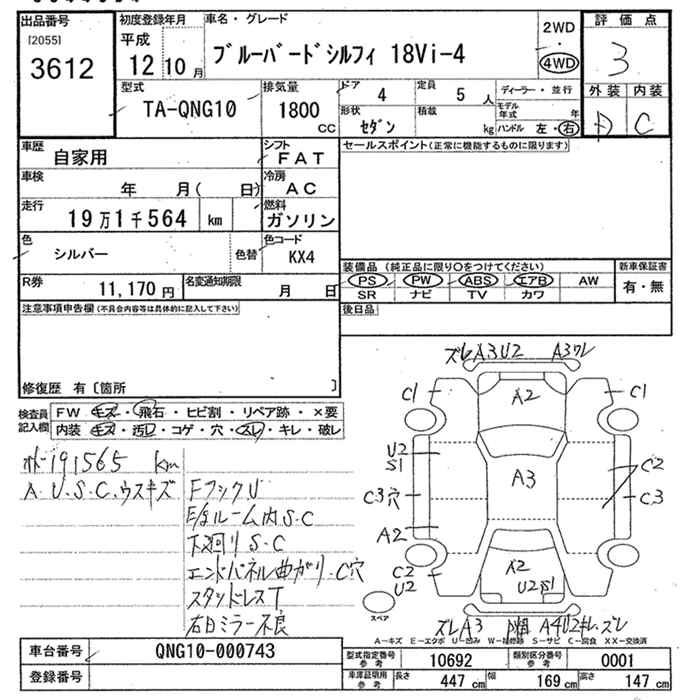 出品番号
[2055]
3612
初度登録年月
平成
12 10月
車名・グレード
ブルーバードシルフィ 18Vi-4
2WD
4WD
評価点
3
外装 内装
D C
型式
TA-QNG10
排気量
1800 CC
ドア 4
定員 5 人
形状 セダン
積載 kg
ディーラー・並行
モデル年式 年
ハンドル 左・右
車歴 自家用
シフト FAT
車検 年 月( 日)
冷房 AC
走行 19万1千564 km
燃料 ガソリン
色 シルバー
色替
色コード KX4
R券 11,170 円
名変通知期限 月 日
セールスポイント(正常に機能するものに限ります)
装備品(純正品に限り○をつけてください)
PS PW ABS エアB AW
SR ナビ TV カワ
新車保証書
有・無
後日品
注意事項申告欄(不具合内容等は具体的に記入して下さい)
修復歴 有〔箇所 〕
検査員記入欄
FW キズ・飛石・ヒビ割・リペア跡・×要
内装 キズ・汚レ・コゲ・穴・スレ・キレ・破レ
191565 km
A.U.S.C.ウスキズ
FフックU
E/gルーム内S.C
下廻りS.C
エンドパネル曲がり.C穴
スタッドレスT
右Dミラー不良
ズレA3U2 A3ワレ
C1 A2 C1
U2
S1
C2
A3
C3穴 C3
A2
C2
U2
A2
U2S1
スペア
ズレA3 A4U2キレ.ズレ
A-キズ E-エクボ U-凹み W-補修跡 S-サビ C-腐食 XX-交換済
車台番号 QNG10-000743
登録番号
型式指定番号 参考 10692
類別区分番号 参考 0001
車庫証明用 参考 長さ 447 cm 幅 169 cm 高さ 147 cm